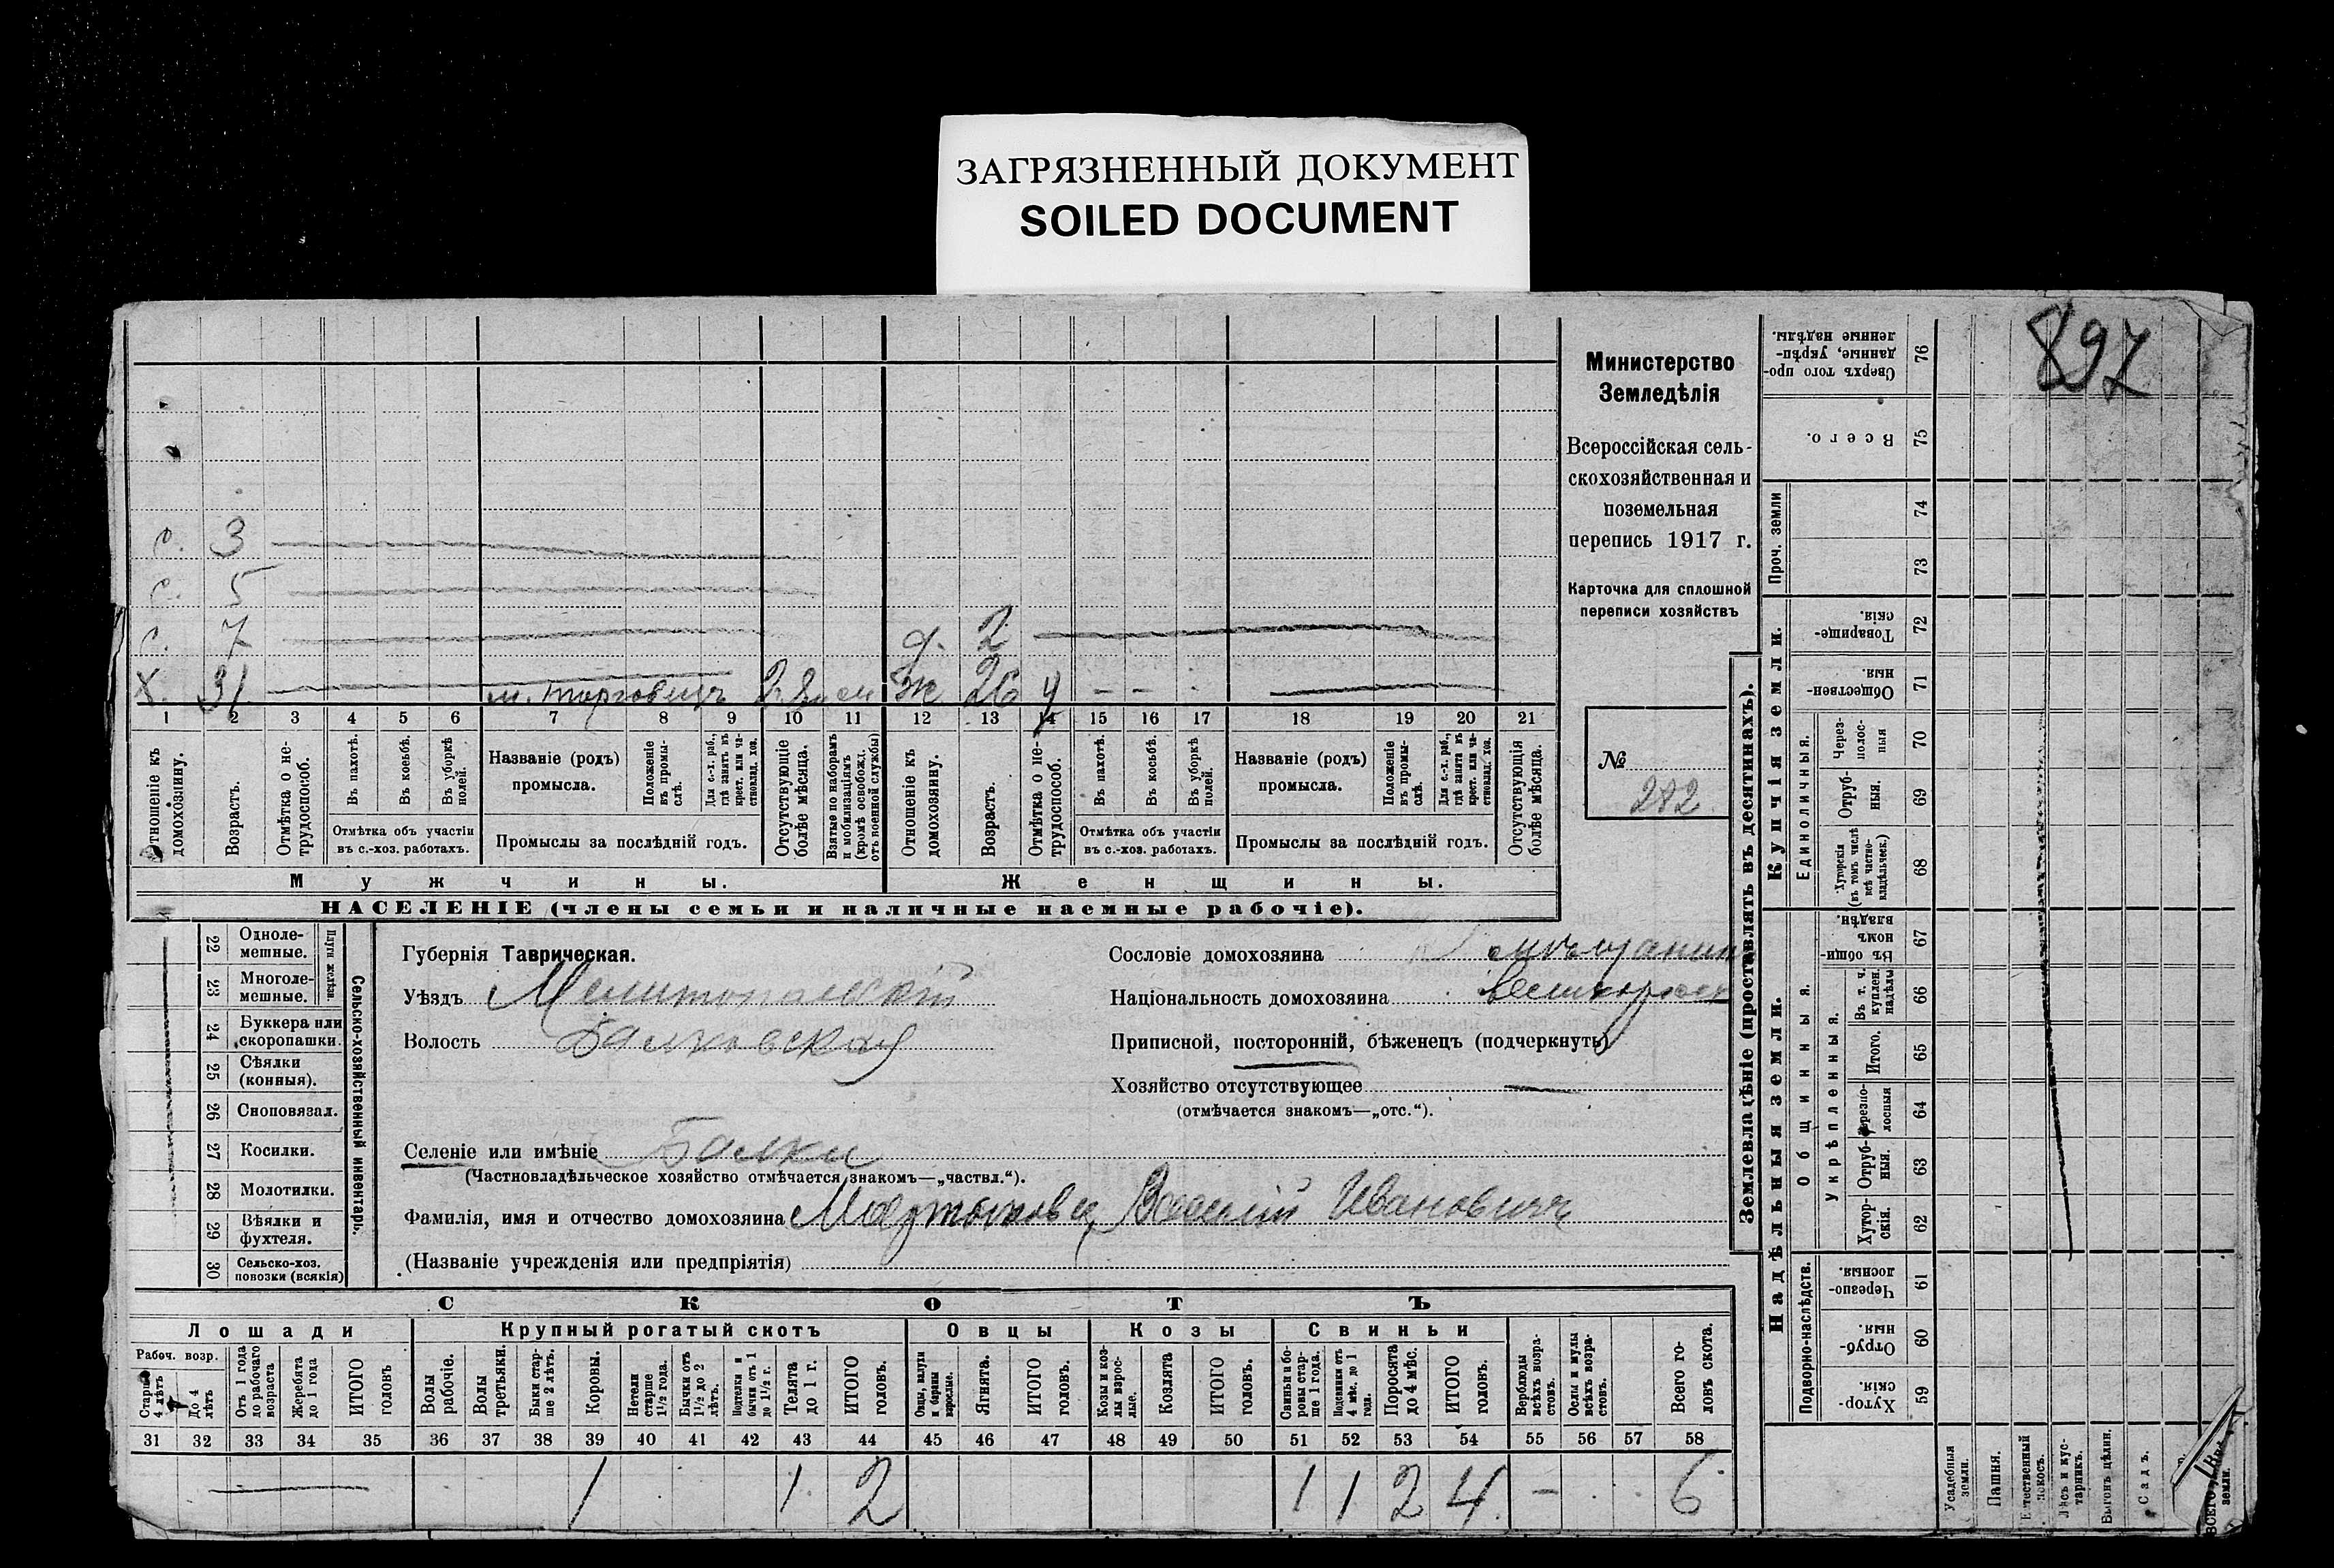 ЗАГРЯЗНЕННЫЙ ДОКУМЕНТ
SOILED DOCUMENT
897
Министерство
Земледѣлія
Всероссійская сель-
скохозяйственная и
поземельная
перепись 1917 г.
Карточка для сплошной
переписи хозяйствъ
№
282
с. 3
с. 5
с. 7 д. 2
х. 31 м. торговецъ Ж 26
1 2 3 4 5 6 7 8 9 10 11 12 13 14 15 16 17 18 19 20 21
Отношеніе къ домохозяину.
Возрастъ.
Отмѣтка о не-
трудоспособ.
Въ пахотѣ.
Въ косьбѣ.
Въ уборкѣ
полей.
Отмѣтка объ участіи
въ с.-хоз. работахъ.
Названіе (родъ)
промысла.
Положеніе
въ промы-
слѣ.
Для с.-х. раб.,
гдѣ занятъ въ
крест. или ча-
стновлад. хоз.
Промыслы за послѣдній годъ.
Отсутствующіе
болѣе мѣсяца.
Взятые по наборамъ
и мобилизаціямъ
(кромѣ освобожд.
отъ военной службы)
Отношеніе къ
домохозяину.
Возрастъ.
Отмѣтка о не-
трудоспособ.
Въ пахотѣ.
Въ косьбѣ.
Въ уборкѣ
полей.
Отмѣтка объ участіи
въ с.-хоз. работахъ.
Названіе (родъ)
промысла.
Положеніе
въ промы-
слѣ.
Для с.-х. раб.,
гдѣ занята въ
крест. или ча-
стновлад. хоз.
Промыслы за послѣдній годъ.
Отсутствующія
болѣе мѣсяца.
Мужчины.
Женщины.
НАСЕЛЕНІЕ (члены семьи и наличные наемные рабочіе).
22 Одноле-
мешные.
23 Многоле-
мешные.
Плуги желѣзн.
24 Буккера или
скоропашки.
25 Сѣялки
(конныя).
26 Сноповязал.
27 Косилки.
28 Молотилки.
29 Вѣялки и
фухтеля.
30 Сельско-хоз.
повозки (всякія)
Сельско-хозяйственный инвентарь.
Губернія Таврическая.
Уѣздъ Мелитопольскій
Волость Балковская
Селеніе или имѣніе Балки
(Частновладѣльческое хозяйство отмѣчается знакомъ—„частвл.“).
Фамилія, имя и отчество домохозяина Василій Ивановичъ
(Названіе учрежденія или предпріятія)
Сословіе домохозяина мѣщанинъ
Національность домохозяина великороссъ
Приписной, посторонній, бѣженецъ (подчеркнуть)
Хозяйство отсутствующее —
(отмѣчается знакомъ—„отс.“).
СКОТЪ
Лошади
Крупный рогатый скотъ
Овцы
Козы
Свиньи
Рабоч. возр.
Старше
4 лѣтъ
До 4
лѣтъ
Отъ 1 года
до рабочаго
возраста
Жеребята
до 1 года
ИТОГО
головъ
Волы
рабочіе.
Волы
третьяки.
Быки стар-
ше 2 лѣтъ.
Коровы.
Нетели
старше
1½ года.
Бычки отъ
1½ до 2
лѣтъ.
Подтелки и
бычки отъ 1
до 1½ г.
Телята
до 1 г.
ИТОГО
головъ.
Овцы, валухи
и бараны
взрослые.
Ягнята.
ИТОГО
головъ.
Козы и коз-
лы взрос-
лые.
Козлята
ИТОГО
головъ.
Свиньи и бо-
ровы стар-
ше 1 года.
Подсвинки отъ
4 мѣс. до 1
года.
Поросята
до 4 мѣс.
ИТОГО
головъ.
Верблюды
всѣхъ возра-
стовъ.
Ослы и мулы
всѣхъ возра-
стовъ.
Всего го-
ловъ скота.
31 32 33 34 35 36 37 38 39 40 41 42 43 44 45 46 47 48 49 50 51 52 53 54 55 56 57 58
— 1 1 2 1 1 2 4 — 6
Землевладѣніе (проставлять въ десятинахъ).
Купчія земли.
Надѣльныя земли.
Проч. земли
Единоличныя.
Общинныя.
Укрѣпленныя.
Подворно-наслѣдств.
Сверхъ того про-
данные, укрѣп-
ленные надѣлы.
76
Всего.
75
74
73
Товарище-
скія.
72
Обществен-
ныя
71
Через-
полос-
ныя
70
Отруб-
ныя.
69
Хуторскія
(въ томъ числѣ
всѣ частно-
владѣльческ.)
68
Въ общин-
номъ
владѣн.
67
Въ т. ч.
куплен.
надѣлы
66
Итого.
65
Черезпо-
лосныя
64
Отруб-
ныя.
63
Хутор-
скія.
62
Черезпо-
лосныя.
61
Отруб-
ныя.
60
Хутор-
скія.
59
Усадебныя
земли.
Пашня.
Естественный
покосъ.
Лѣсъ и кус-
тарникъ.
Выгонъ цѣлин.
Садъ.
ВСЕГО
земли.